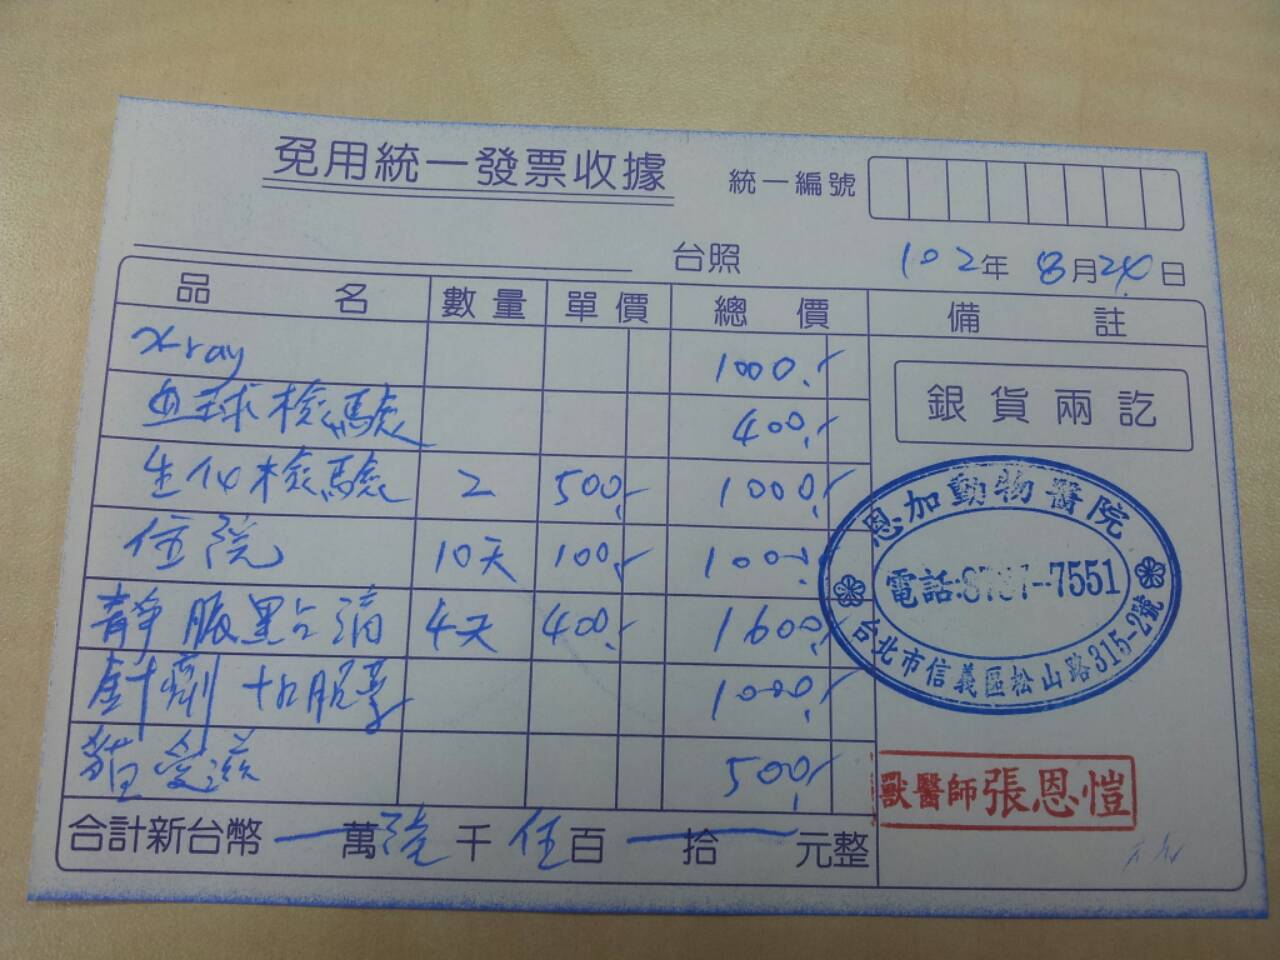 免用統一發票收據
統一編號
台照
102年 8月24日
品名 數量 單價 總價 備註
x-ray 1000.-
血球檢驗 400.-
生化檢驗 2 500.- 1000.-
住院 10天 100.- 1000.-
靜脈點滴 4天 400.- 1600.-
針劑 1000.-
貓愛滋 500.-
合計新台幣 萬陸千伍百 拾 元整
銀貨兩訖
恩加動物醫院
電話: -7551
台北市信義區松山路315-2號
獸醫師張恩愷